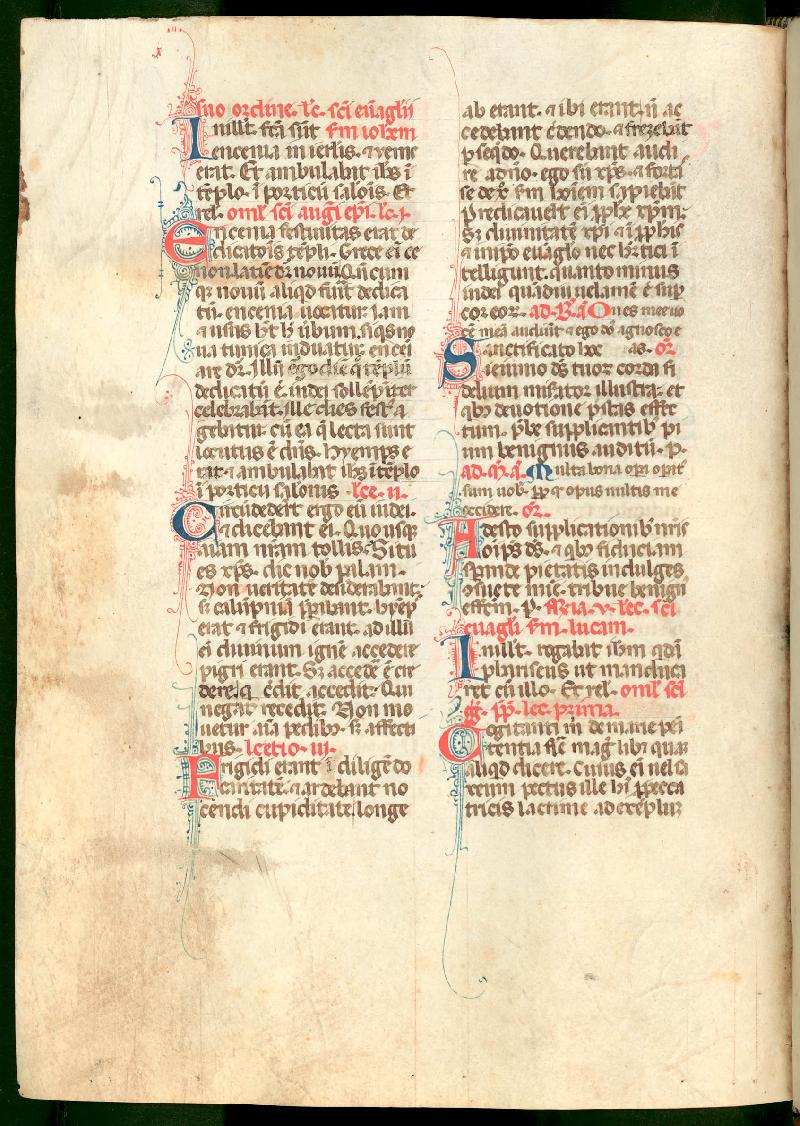 suo ordine. lc. sci euāglii
In illt. fca sūt scdm iohem
encenia in ierlis. ⁊ yemps
erat. Et ambulabat ihs ī
tēplo. ī porticu salois. Et
rel. omł sci augī epi. lc. i.
Encenia festiuitas erat de
dicatois tēpli. Grece eī ce
non latine dr nouū. Qn̄cum
qz nouū aliqd fuīt dedica
tū. encenia uocatur. Iam
⁊ usus hꝫ h̄ ūbum. si qs no
ua tunica induatur. encei
are dr. Illū ego die q̄ tēplū
dedicatū ē. iudei sollēpniter
celebrabāt. Ille dies fest⁹ a
gebatur. cū ea q̄ lecta sunt
locutus ē dn̄s. hyemps e
rat. ⁊ ambulabat ihs ī tēplo
ī porticu salonis. lcc. ii.
Circūdedert ergo eū iudei.
⁊ dicebant ei. Quo usqꝫ
aīam nr̄am tollis. Si tu
es xp̄s. dic nob palam.
Non ueritatē desiderabant.
sꝫ calūpniā p̄parabant. hyēps
erat ⁊ frigidi erant. ad illū
ei diuinum ignē accedere
pigri erant. Sꝫ accedē ē cre
dere. q̄ credit accedit. Qui
negat recedit. Non mo
uetur aīa pedibꝫ. sꝫ affecti
bus. lectio. iii.
Frigidi erant ī diligēdo
caritatē. ⁊ ardebant no
cendi cupiditate. longe
ab erant. ⁊ ibi erant. nō ac
cedebant credendo. ⁊ p̄mebāt
psequēdo. Querebant audi
re a dn̄o. ego su xp̄s. ⁊ forti
se de xp̄o scdm hoīem sapiebāt
Predicauerūt eī pphe xp̄m.
Sꝫ diuinitatē xp̄i ⁊ ī pphis
⁊ in ip̄o euāglo nec hertici ī
telligunt. quanto minus
iudei quādiu uelamē ē sup
cor eor. ad .b. a. Oues mee uo
cē meā audiūt ⁊ ego dn̄s agnosco e
Sanctificato hoc as. or̄
ieiunio dꝰ tuor corda fi
delium mi͡sator illustra. et
qbꝫ deuotione p̄stas effc
tum. p̄be supplicantibꝫ pi
um benignus auditū. P.
ad. m̄. a. Multa bona opa opat
sum uob. ppt qd opus uultis me
occidere. or̄.
Adesto supplicationibꝫ nr̄is
oīps dꝰ. ⁊ qbꝫ fiduciam
spande pietatis indulges.
ꝯsuete mīe. tribue benign
effectm. P. Feria. v. lec. sci
euaglī scdm. lucam.
In illt. rogabat ihm qdā
phariseus ut manduca
ret cū illo. Et rel. omł sci
gg. pp. lec. prima.
Cogitanti m̄ de marie peī
tentia flē magꝭ libꝫ quaꝫ
aliqd dicere. Cuius eī uel sa
xeum pectus ille hꝰ pecca
tricis lacrime ad exēplum